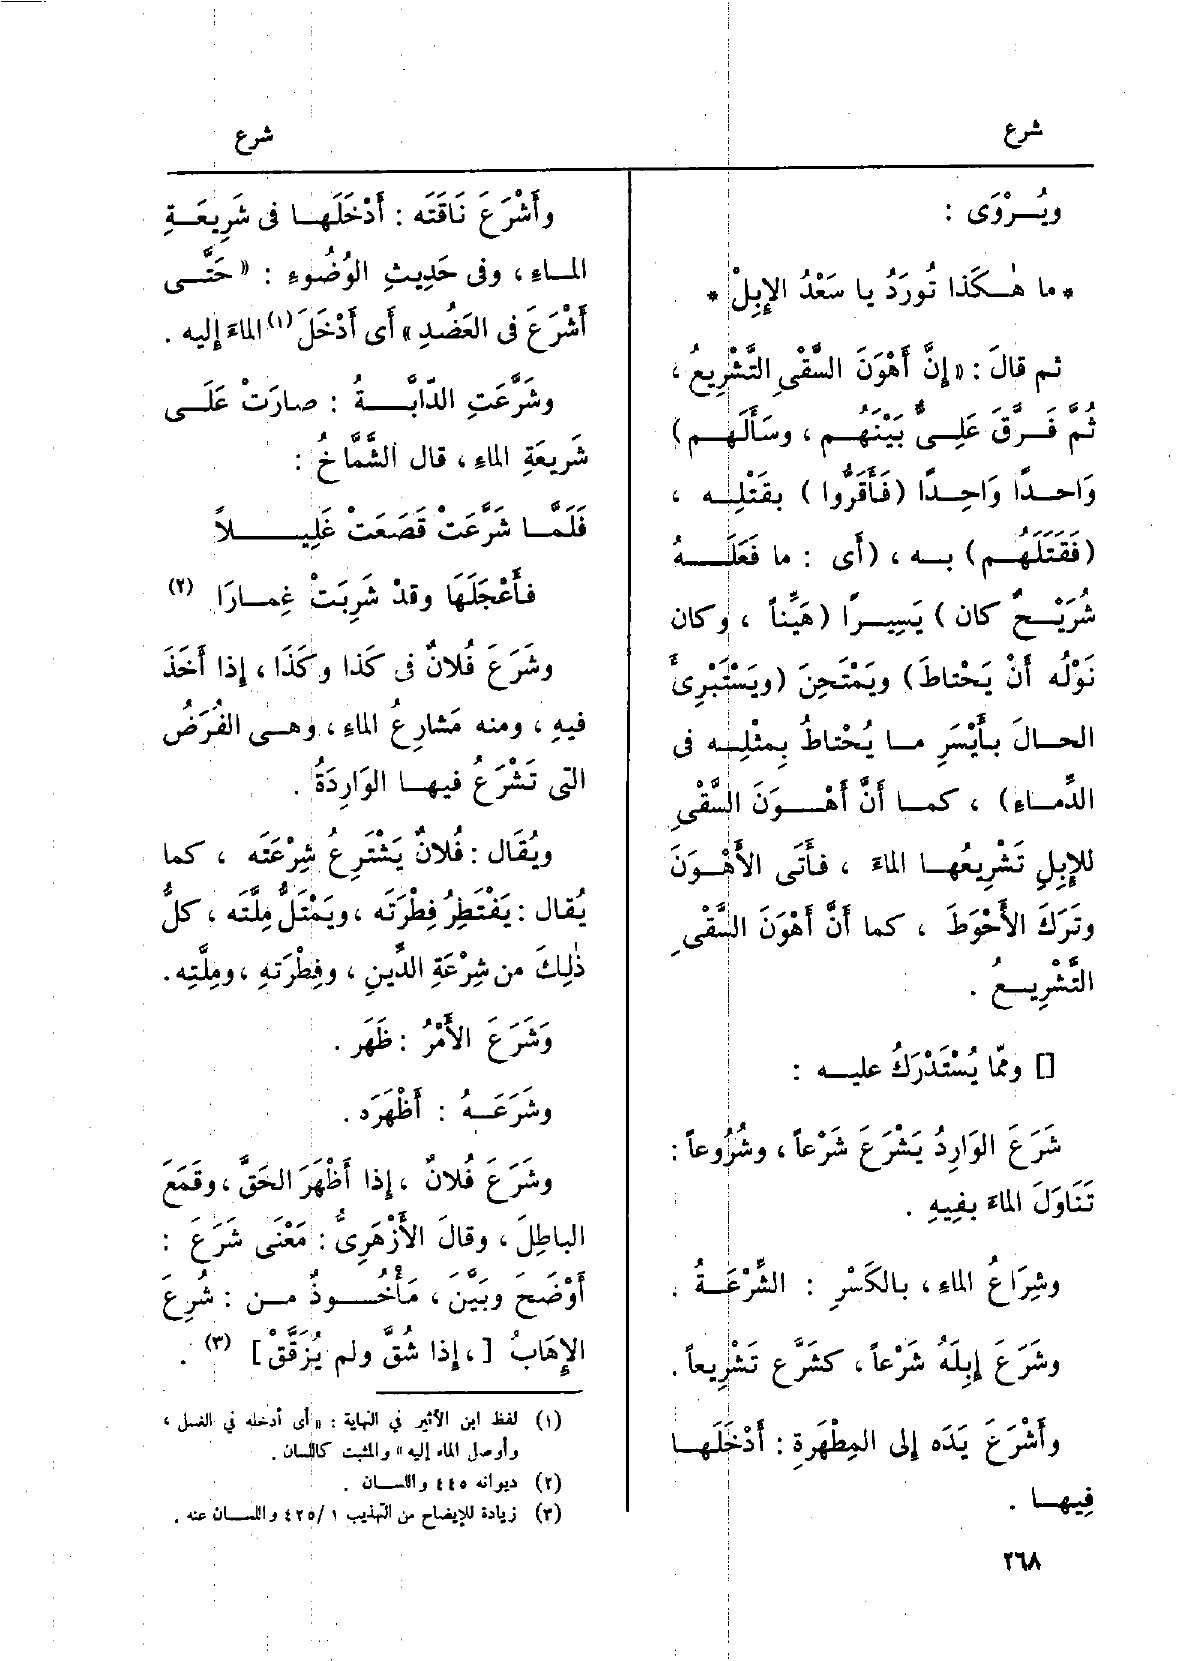 شرع
شرع
ويُـرْوَى :
* ما هٰـكَذا تُورَدُ يا سَعْدُ الإِبِلْ *
ثم قالَ : « إنَّ أَهْوَنَ السَّقْىِ التَّشْرِيعُ ،
ثُمَّ فَـرَّقَ عَلِـىٌّ بَيْنَهُـم ، وسَأَلَهـم )
وَاحـدًا وَاحِـدًا (فَأَقَرُّوا ) بقَتْلِـه ،
(فَقَتَلَهُـم) بـه ، (أَى : ما فَعَلَـهُ
شُرَيْـحٌ كان ) يَسِيـرًا (هَيِّناً ، وكان
نَوْلُه أَنْ يَحْتاطَ) ويَمْتَحِنَ (ويَسْتَبْرِئَ
الحـالَ بـأَيْسَرِ مـا يُحْتاطُ بِمثْلِـه فى
الدِّمـاءِ) ، كمـا أَنَّ أَهْـوَنَ السَّقْىِ
للإِبِلِ تَشْرِيعُهـا الماءَ ، فـأَتَى الأَهْـوَنَ
وتَرَكَ الأَحْوَطَ ، كما أَنَّ أَهْوَنَ السَّقْىِ
التَّشْرِيـعُ .
[] وممّا يُسْتَدْرَكُ عليـه :
شَرَعَ الوَارِدُ يَشْرَعَ شَرْعاً ، وشُرُوعاً :
تَنَاوَلَ الماءَ بفِيهِ .
وشِرَاعُ الماءِ ، بالكَسْرِ : الشِّرْعَـةُ .
وشَرَعَ إبِلَهُ شَرْعاً ، كشَرَّع تَشْرِيعاً .
وأَشْرَعَ يَدَه إلى المِطْهَرةِ : أَدْخَلَهـا
فِيهـا .
وأَشْرَعَ نَاقَتَه : أَدْخَلَهـا فى شَرِيعَـةِ
المـاءِ ، وفى حَدِيثِ الوُضُوءِ : « حَتَّـى
أَشْرَعَ فى العَضُدِ » أَى أَدْخَلَ (١) الماءَ إليه .
وشَرَّعَتِ الدّابَّـةُ : صارَتْ عَلَـى
شَرِيعَةِ الماءِ ، قال الشَّمَّاخُ :
فَلَمَّـا شَرَّعَتْ قَصَعَتْ غَلِيـلاً
فـأَعْجَلَهَا وقدْ شَرِبَتْ غِمـارَا (٢)
وشَرَعَ فُلانٌ فى كَذا وكَذَا ، إذا أَخَذَ
فيهِ ، ومنه مَشارِعُ الماءِ ، وهـى الفُرَضُ
التى تَشْرَعُ فيهـا الوَارِدَةُ .
ويُقَال : فُلانٌ يَشْتَرِعُ شِرْعَتَه ، كما
يُقال : يَفْتَطِرُ فِطْرَتَه ، ويَمْتَلُّ مِلَّتَه ، كلُّ
ذٰلِكَ من شِرْعَةِ الدِّينِ ، وفِطْرَتهِ ، ومِلَّتِه .
وَشَرَعَ الأَمْرُ : ظَهَر .
وشَرَعَـهُ : أَظْهَرَه .
وشَرَعَ فُلانٌ ، إذا أَظْهَرَ الحَقَّ ، وقَمَعَ
الباطِلَ ، وقالَ الأَزْهَرِىُّ : مَعْنَى شَرَعَ :
أَوْضَحَ وبَيَّنَ ، مَأْخُـوذٌ مـن : شُرِعَ
الإِهَابُ [ ، إذا شُقَّ ولم يُزَقَّقْ ] (٣) .
(١) لفظ ابن الأثير في النهاية : « أى أدخله في الغسل ،
وأوصل الماء إليه » والمثبت كاللسان .
(٢) ديوانه ٤٤٥ واللسـان .
(٣) زيادة للإيضاح من التهذيب ١ /٤٢٥ واللسـان عنه .
٢٦٨